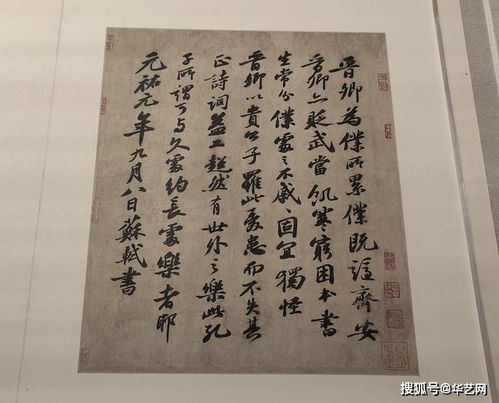 晉卿為僕所累僕既謫齊安
晉卿亦貶武當飢寒窮困本書
生常分僕處之不戚〻固宜獨怪
晉卿以貴公子罹此憂患而不失其
正詩詞益工超然有世外之樂此孔
子所謂可與久處約長處樂者耶
元祐元年九月八日蘇軾書
搜狐号@华艺网